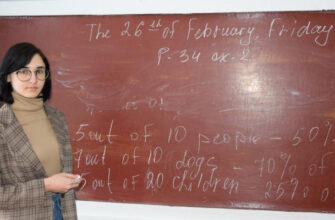 The 26th of February, Friday
P. 34 ex. 2
5 out of 10 people - 50%
7 out of 10 dogs - 70% of
5 out of 20 children 25% o